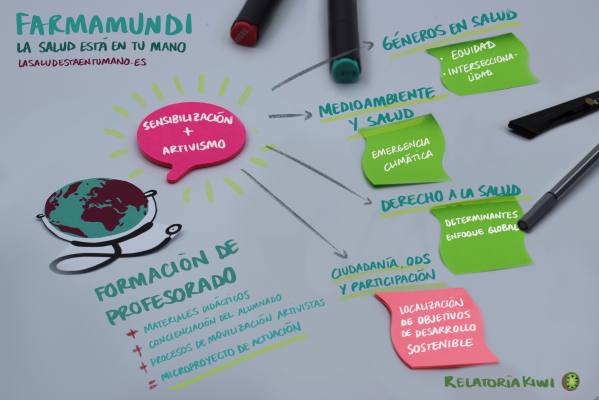 FARMAMUNDI
LA SALUD ESTÁ EN TU MANO
LASALUDESTAENTUMANO.ES
SENSIBILIZACIÓN
+
ARTIVISMO
GÉNEROS EN SALUD
· EQUIDAD
· INTERSECCIONA-
LIDAD
MEDIOAMBIENTE
Y SALUD
EMERGENCIA
CLIMÁTICA
DERECHO A LA SALUD
DETERMINANTES
ENFOQUE GLOBAL
CIUDADANÍA, ODS
Y PARTICIPACIÓN
LOCALIZACIÓN
DE OBJETIVOS
DE DESARROLLO
SOSTENIBLE
FORMACIÓN DE
PROFESORADO
+ MATERIALES DIDÁCTICOS
+ CONCIENCIACIÓN DEL ALUMNADO
+ PROCESOS DE MOVILIZACIÓN ARTIVISTAS
= MICROPROYECTO DE ACTUACIÓN
RELATORÍA KIWI